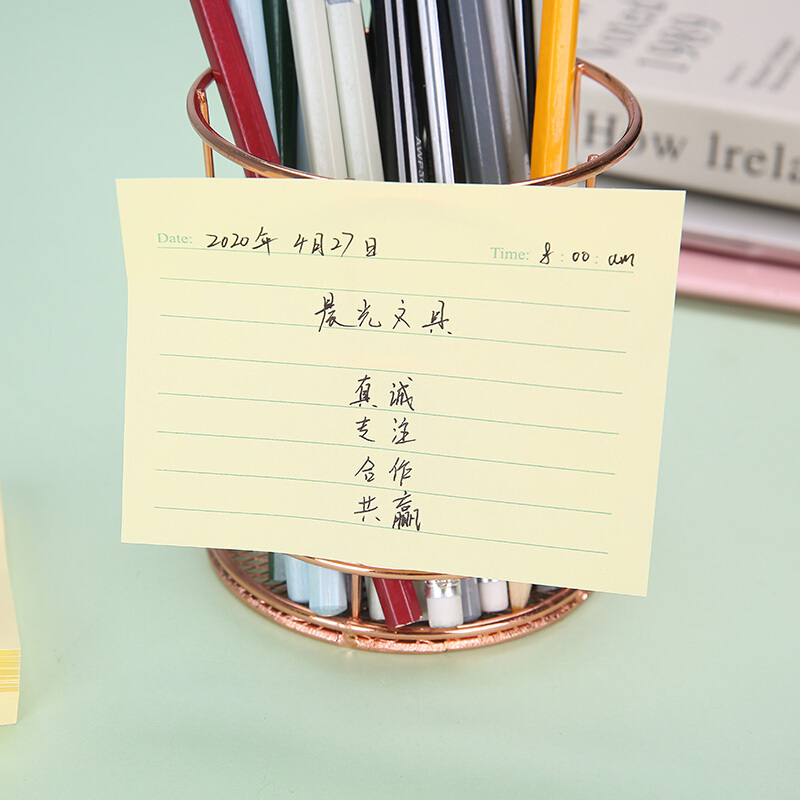 1989
How Irela
Date: 2020年 4月27日 Time: 8:00:am
晨光文具
真诚
专注
合作
共赢